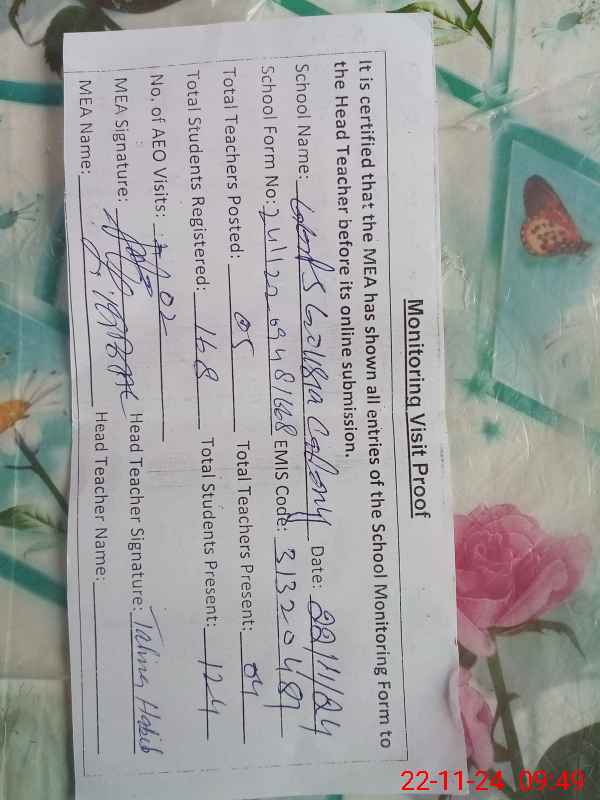 Monitoring Visit Proof
It is certified that the MEA has shown all entries of the School Monitoring Form to
the Head Teacher before its online submission.
School Name: Colony Date: 22/11/24
School Form No: EMIS Code: 31320481
Total Teachers Posted: 05 Total Teachers Present: 04
Total Students Registered: 168 Total Students Present: 124
No. of AEO Visits: 02
MEA Signature: Head Teacher Signature: Tahira Habib
MEA Name: Head Teacher Name:
22-11-24 09:49